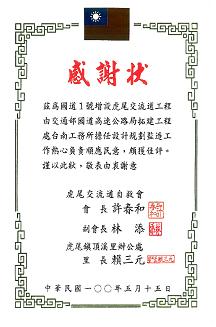 感謝狀
茲為國道1號增設虎尾交流道工程
由交通部國道高速公路局拓建工程
處台南工務所擔任設計規劃監造工
作熱心負責順應民意,頗獲佳評。
謹以此狀,敬表由衷謝意
虎尾交流道自救會
會長 許春和
副會長 林添
虎尾鎮頂溪里辦公處
里長 賴三元
中華民國一○○年五月十五日